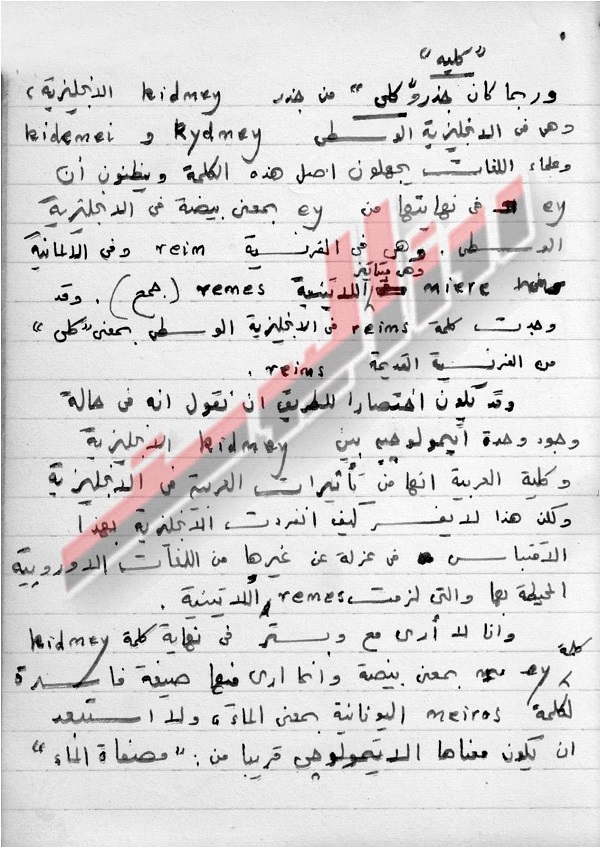 ”كليه“
وربما كان جذر ”كلى“ من جذر kidney الانجليزية ،
وهى فى الانجليزية الوسطى kydney و kidenei
وعلماء اللغات يجهلون اصل هذه الكلمة ويظنون أن
ey فى نهايتها من ey بمعنى بيضة فى الانجليزية
الوسطى . وهى فى الفرنسية rein وفى الالمانية
niere وهى متأثرة اللاتينية renes (جمع) . وقد
وجدت كلمة reins فى الانجليزية الوسطى بمعنى ”كلى“
من الفرنسية القديمة reins .
وقد يكون اختصارا للطريق ان نقول انه فى حالة
وجود وحدة ايمولوجيه بين kidney الانجليزية
وكلية العربية انها من تأثيرات العربية فى الانجليزية
ولكن هذا لا يفسر كيف انفردت الانجليزية بهذا
الاقتباس فى عزلة عن غيرها من اللغات الاوروبية
المحيطة بها والتى لزمت renes اللاتينية .
وانا لا أرى مع وبستر فى نهاية كلمة kidney
كلمة ey بمعنى بيضة وانما ارى فيها صيغة فاسدة
لكلمة neiros اليونانية بمعنى الماء ، ولا استبعد
ان يكون معناها الايتمولوجى قريبا من : ”مصفاة الماء“